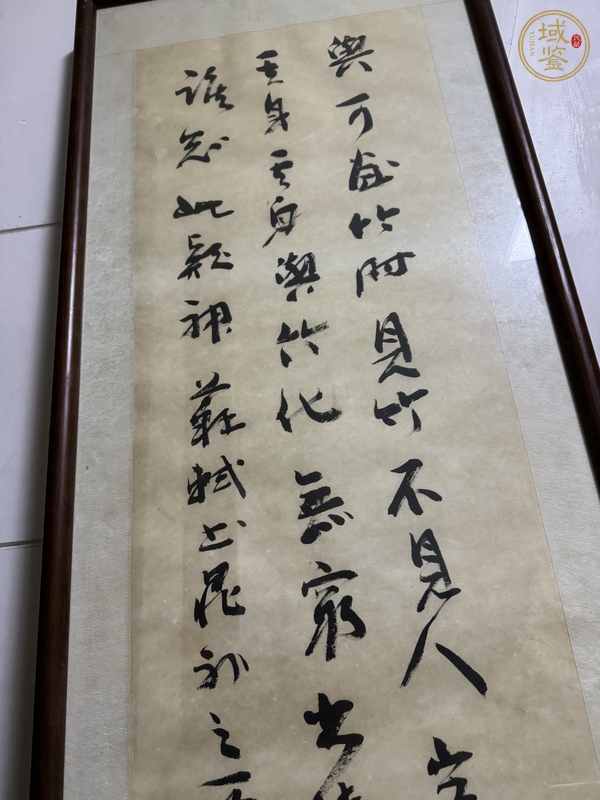 與可畫竹時見竹不見人
其身其身與竹化無窮出
誰知此疑神蘇軾書晁補之
域鉴
YUJIAN